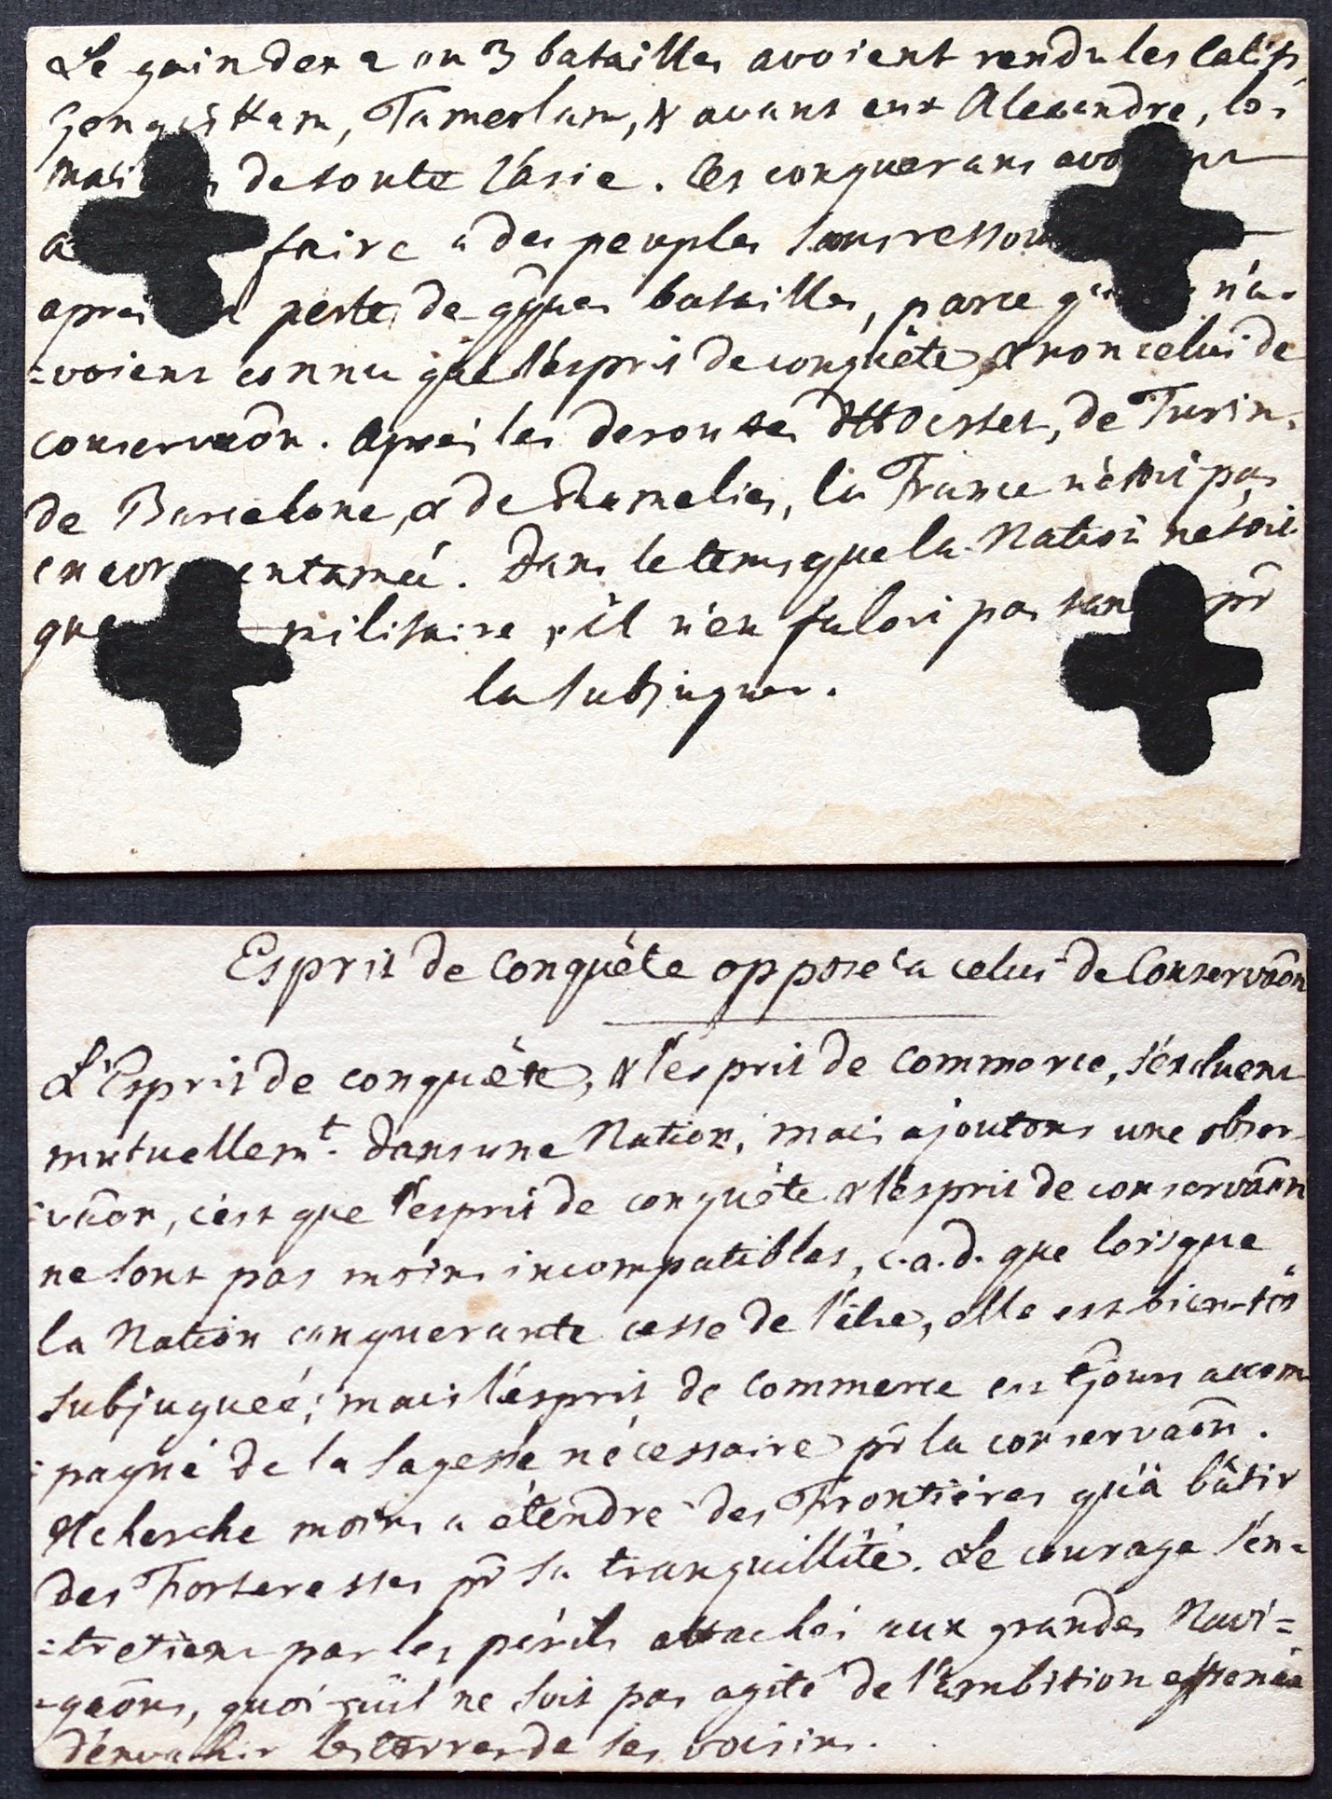 Le gain de 2 ou 3 batailles avoient rendu les Calif,
Gengiskam, Tamerlam, & avant eux Alexandre,
de toute l'asie. Ces conquerans
faire a des peuples sans
apres perte de qques batailles, parce n'a-
=voient connu que l'esprit de conquète, & non celui de
conservaôn. Après les deroutes d'Hocstet, de Turin,
de Barcelone, & de Ramelies, la France n'étoit pas
encor entamée. Dans le tems que la Nation n'etoit
que militaire, il n'en faloit pas pr̃
la subjuguer.
Esprit de Conquête opposé a celui de Conservaôn
L'Esprit de conquête, & l'esprit de Commerce, s'excluent
mutuellemt. dans une Nation, mais ajoutons une obser-
=vaôn, c'est que l'esprit de conquête & l'esprit de conservaôn
ne sont pas moins incompatibles, c.a.d. que lorsque
la Nation conquerante cesse de l'être, elle est bien-tôt
subjugueé; mais l'ésprit de Commerce est tjours accom
=pagné de la sagesse nécessaire pr̃ la conservaôn.
Il cherche moins a étendre des Frontières qu'à bâtir
des Forteresses pr̃ sa tranquillité. Le courage s'en=
=tretient par les périls attachés aux grandes Navi=
=gaôns, quoi-qu'il ne soit pas agité de l'ambition effrenée
d'envahir les terres de ses voisins.